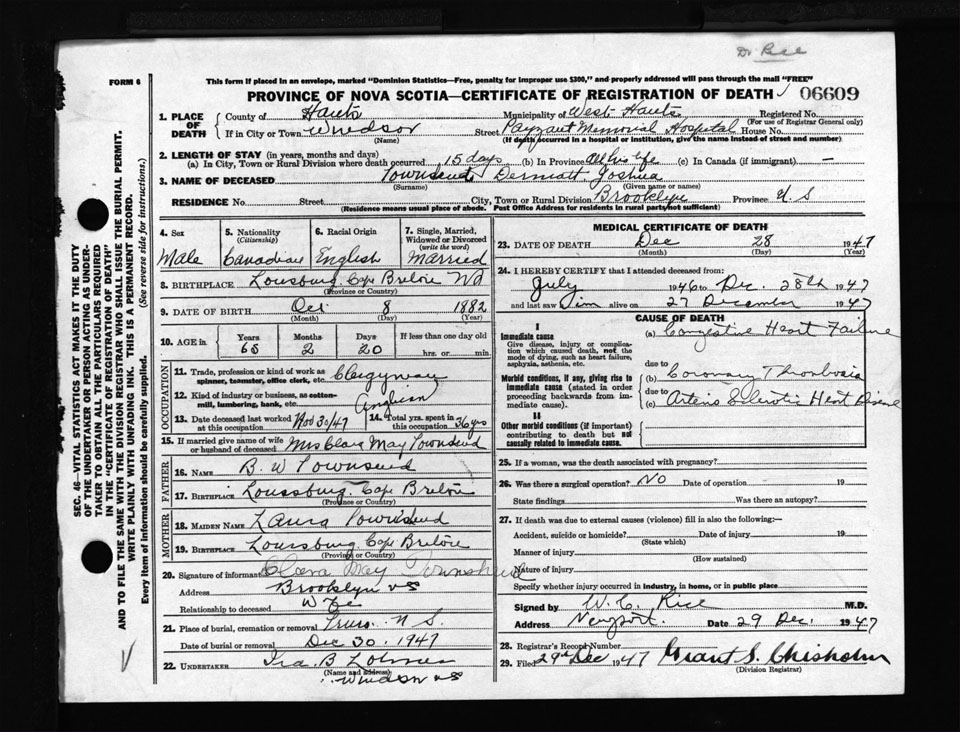 Dr Rice
FORM 6
This form if placed in an envelope, marked "Dominion Statistics—Free, penalty for improper use $300," and properly addressed will pass through the mail "FREE"
PROVINCE OF NOVA SCOTIA—CERTIFICATE OF REGISTRATION OF DEATH 06609
1. PLACE OF DEATH
County of Hants Municipality of West Hants Registered No.
(For use of Registrar General only)
If in City or Town Windsor Street Payzant Memorial Hospital House No.
(Name) (If death occurred in a hospital or institution, give the name instead of street and number)
2. LENGTH OF STAY (in years, months and days)
(a) In City, Town or Rural Division where death occurred 15 days (b) In Province All his life (c) In Canada (if immigrant) —
3. NAME OF DECEASED Townsend Dermott Joshua
(Surname) (Given name or names)
RESIDENCE No. Street City, Town or Rural Division Brooklyn Province N.S
(Residence means usual place of abode. Post Office Address for residents in rural parts not sufficient)
4. Sex Male
5. Nationality (Citizenship) Canadian
6. Racial Origin English
7. Single, Married, Widowed or Divorced (write the word) Married
8. BIRTHPLACE Lousburg Cape Breton NS
(Province or Country)
9. DATE OF BIRTH Oct 8 1882
(Month) (Day) (Year)
10. AGE in Years 65 Months 2 Days 20 If less than one day old
hrs. or min.
OCCUPATION
11. Trade, profession or kind of work as spinner, teamster, office clerk, etc. Clergyman
12. Kind of industry or business, as cotton-mill, lumbering, bank, etc.
13. Date deceased last worked at this occupation Nov 30/47 14. Total yrs. spent in this occupation 36 yrs
15. If married give name of wife or husband of deceased Mrs Clara May Townsend
FATHER
16. NAME B. W Townsend
17. BIRTHPLACE Louisburg Cape Breton
(Province or Country)
MOTHER
18. MAIDEN NAME Laura Townsend
19. BIRTHPLACE Louisburg, Cape Breton
(Province or Country)
20. Signature of informant Clara May Townshend
Address Brooklyn NS
Relationship to deceased Wife
21. Place of burial, cremation or removal Truro. N S.
Date of burial or removal Dec 30. 1947
22. UNDERTAKER Ira. B
(Name and address)
Windsor NS
MEDICAL CERTIFICATE OF DEATH
23. DATE OF DEATH Dec 28 1947
(Month) (Day) (Year)
24. I HEREBY CERTIFY that I attended deceased from:
July 1946 to Dec. 28th 1947
and last saw him alive on 27 December 1947
CAUSE OF DEATH
I
Immediate cause
Give disease, injury or complication which caused death, not the mode of dying, such as heart failure, asphyxia, asthenia, etc.
(a) Congestive Heart Failure
due to
Morbid conditions, if any, giving rise to immediate cause (stated in order proceeding backwards from immediate cause).
(b) Coronary Thrombosis
due to
(c) Arterio Sclerotic Heart Disease
II
Other morbid conditions (if important) contributing to death but not causally related to immediate cause.
25. If a woman, was the death associated with pregnancy?
26. Was there a surgical operation? NO Date of operation 19
State findings Was there an autopsy?
27. If death was due to external causes (violence) fill in also the following:—
Accident, suicide or homicide? Date of injury 19
(State which)
Manner of injury
(How sustained)
Nature of injury
Specify whether injury occurred in industry, in home, or in public place
Signed by W. C. Rice M.D.
Address Newport. Date 29 Dec. 1947
28. Registrar's Record Number
29. Filed 29th Dec 1947 Grant S. Chisholm
(Division Registrar)
SEC. 46—VITAL STATISTICS ACT MAKES IT THE DUTY
OF THE UNDERTAKER OR PERSON ACTING AS UNDERTAKER TO OBTAIN ALL THE PARTICULARS REQUIRED
IN THE "CERTIFICATE OF REGISTRATION OF DEATH"
AND TO FILE THE SAME WITH THE DIVISION REGISTRAR WHO SHALL ISSUE THE BURIAL PERMIT.
WRITE PLAINLY WITH UNFADING INK. THIS IS A PERMANENT RECORD.
Every item of information should be carefully supplied. (See reverse side for instructions.)